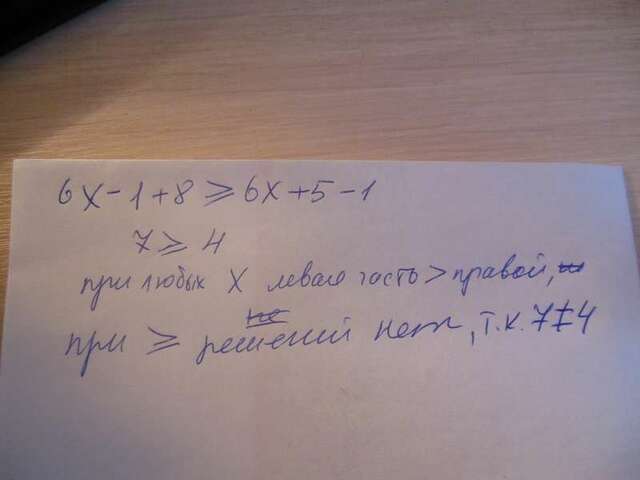 6x-1+8⩾6x+5-1
7⩾4
при любых X левая часть > правой,
при ⩾ решений нет, т.к. 7≠4